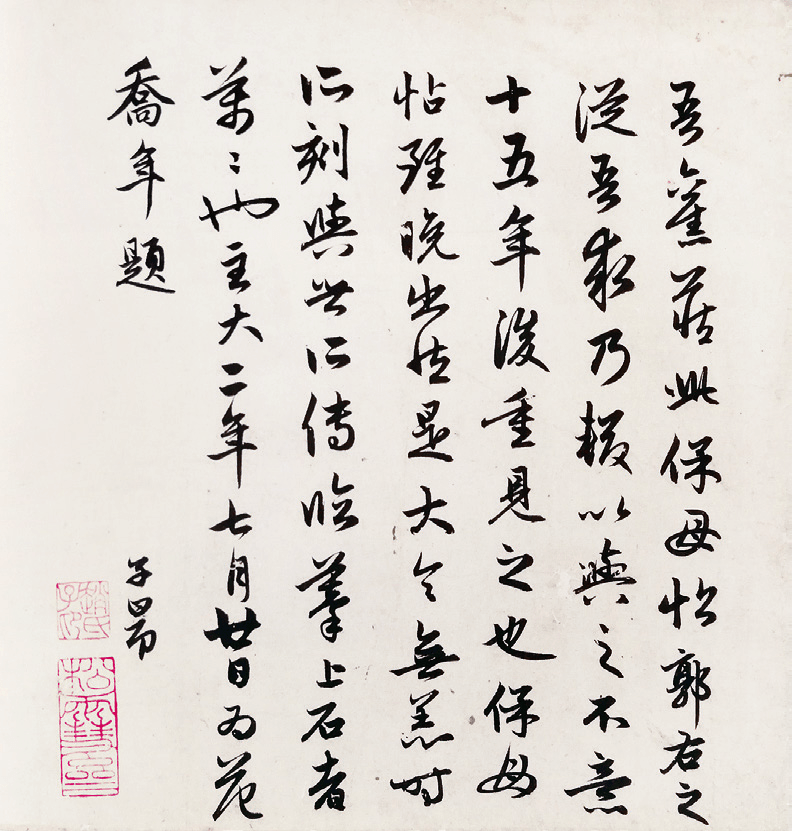 吾舊藏此保母帖郭右之
從吾求乃輟以與之不意
十五年後重見之也保母
帖雖晚出然是大令無恙時
所刻與世所傳臨摹上石者
萬〻也至大二年七月廿日為范
喬年題
子昂
趙氏子昂
松雪齋